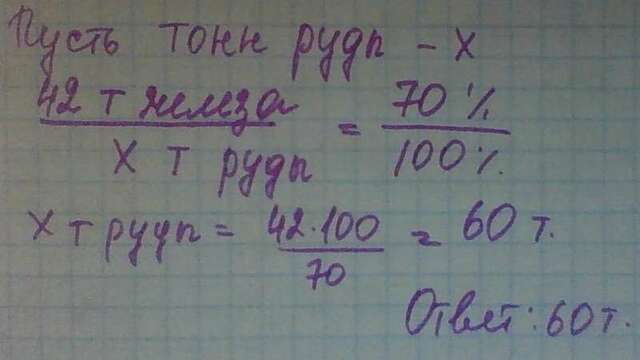 Пусть тонн руды - х
42 т железа / х т руды = 70% / 100%
х т руды = 42·100 / 70 = 60 т.
Ответ: 60 т.